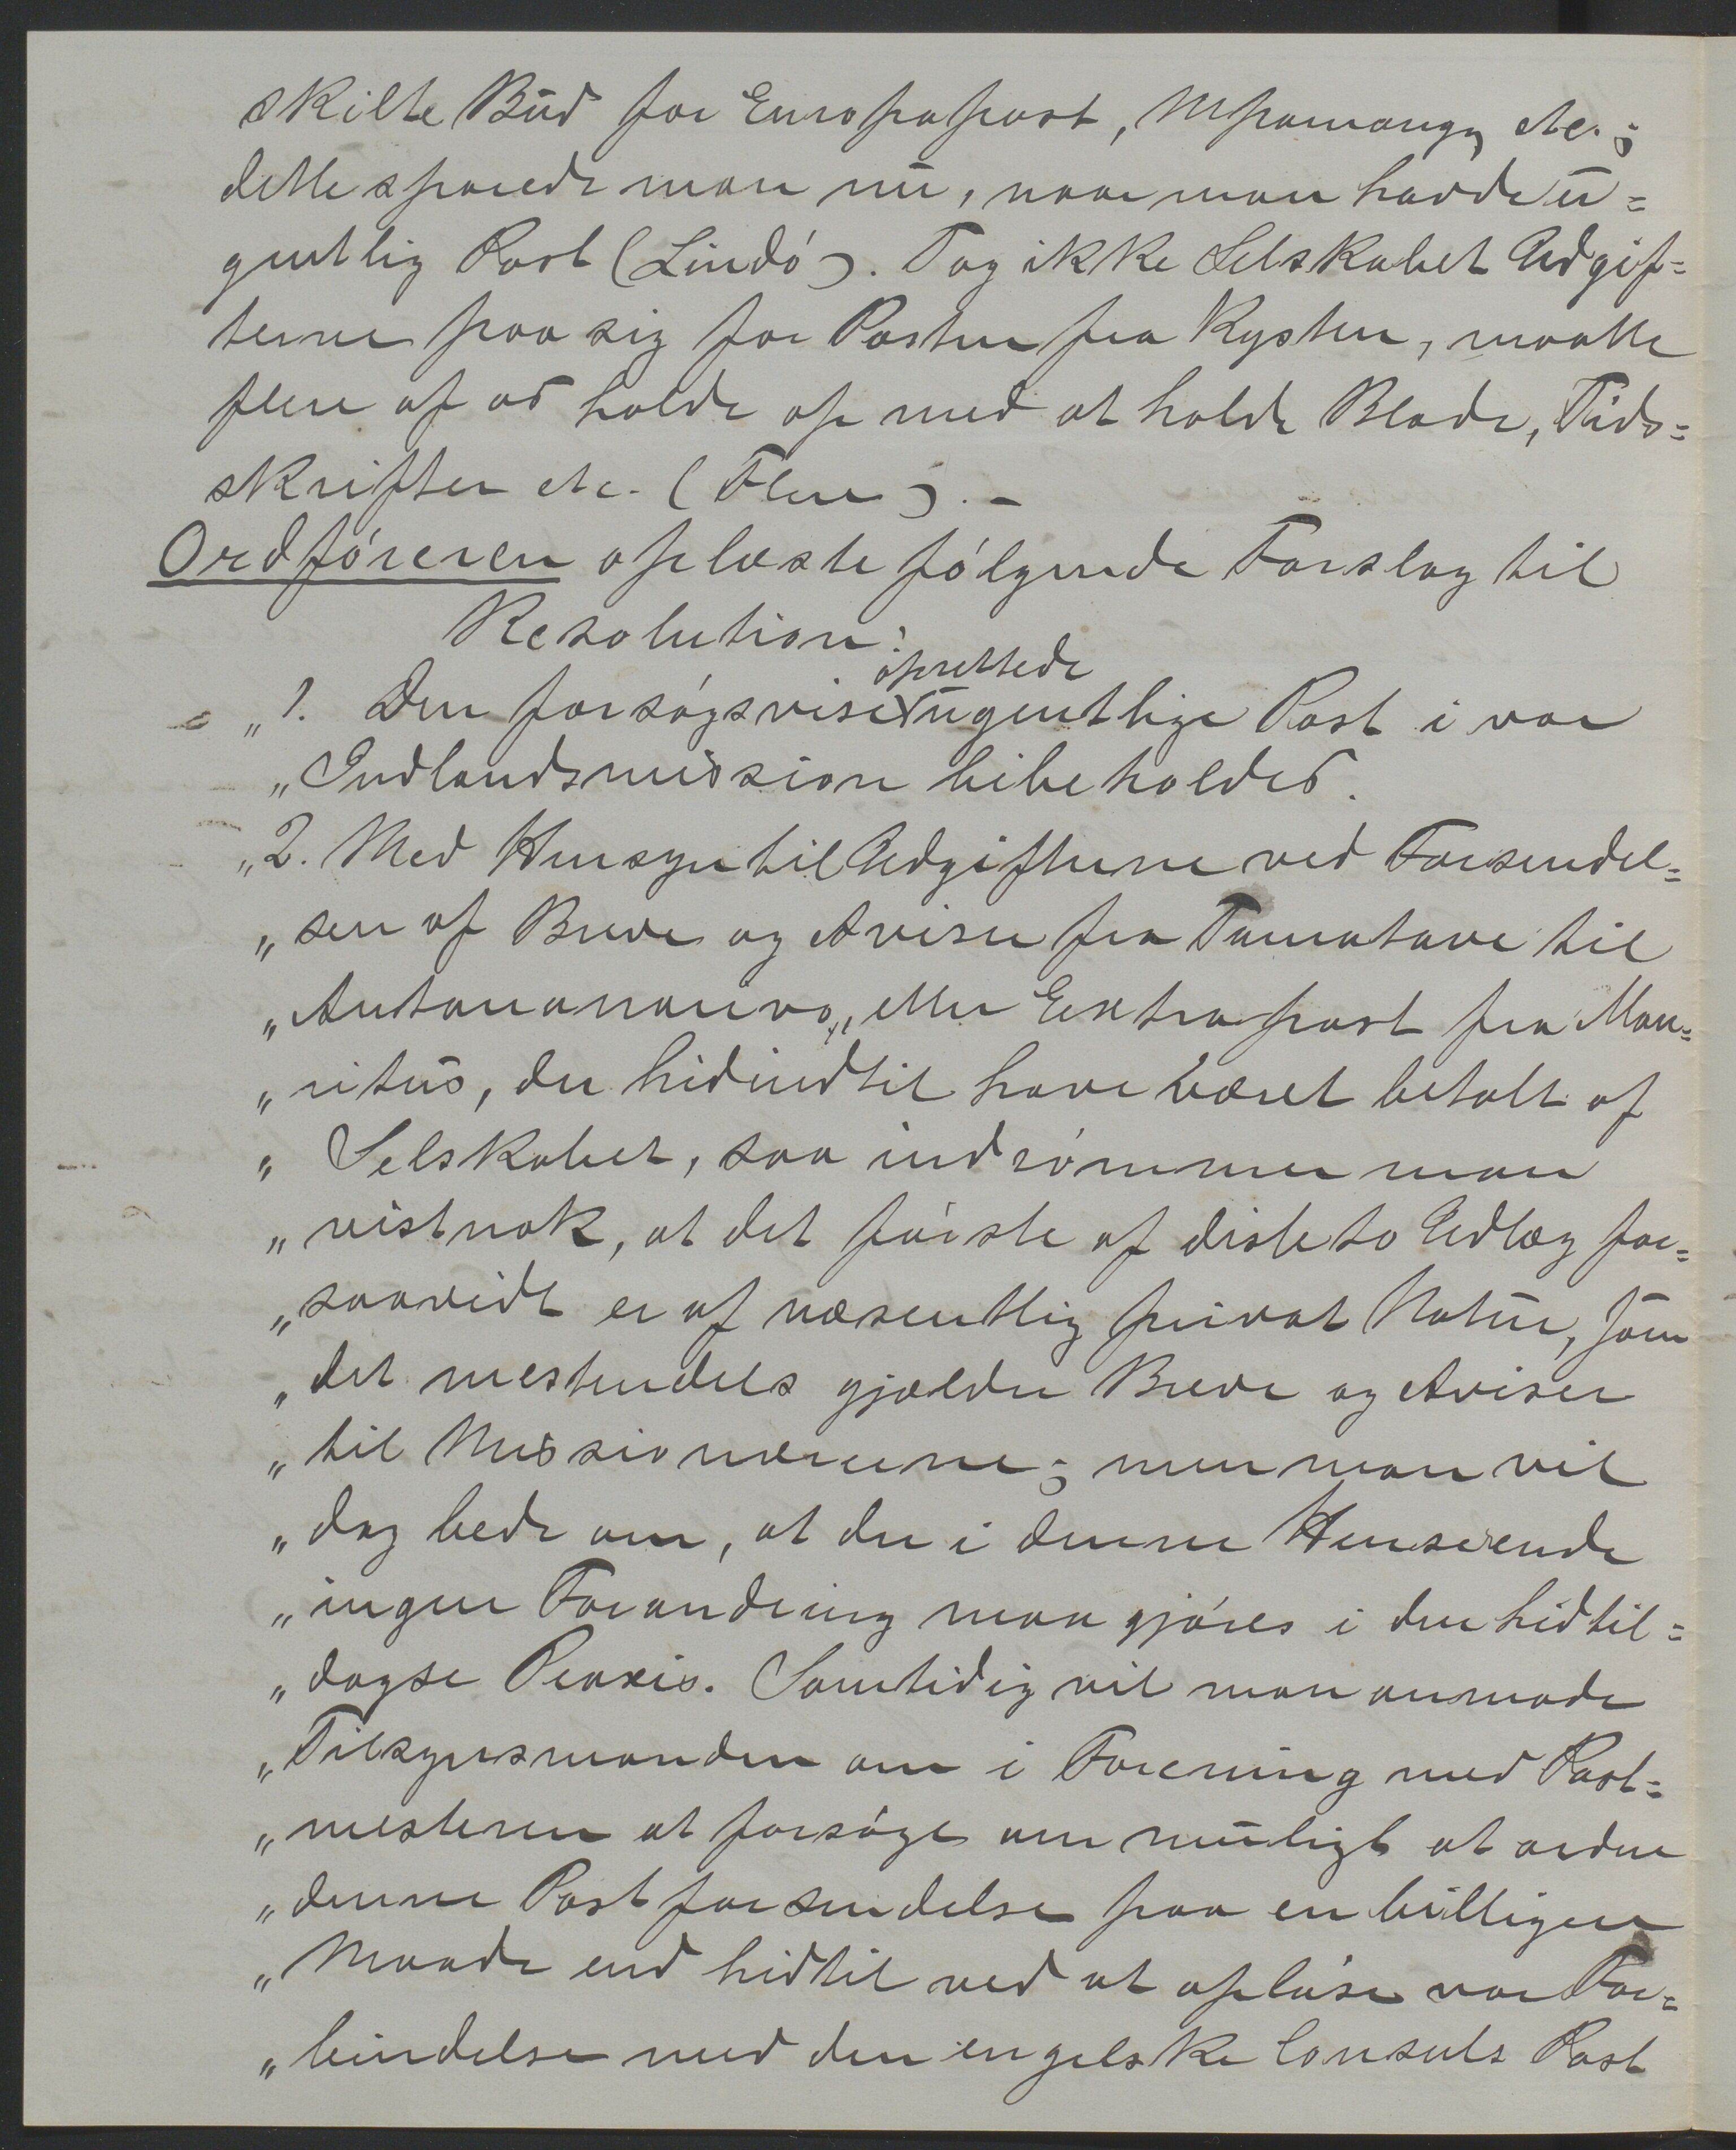 skilte Bud for Europapost, Mpamanga etc.;
dette sparede man nu, naar man havde u-
gentlig Post (Lindö). Tog ikke Selskabet Udgif-
terne paa sig for Posten fra Kysten, maatte
flere af os holde op med at holde Blade, Tids-
skrifter etc. (Flere). –
Ordföreren oplæste fölgende Forslag til
Resolution:
oprettede
„1. Den forsögsvise ugentlige Post i vor
„Indlandsmission bibeholdes.
„2. Med Hensyn til Udgifterne ved Forsendel-
„sen af Breve og Aviser fra Tamatave til
„Antananarivo„ eller Extrapost fra Mau-
„ritus, der hidindtil have været betalt af
„Selskabet, saa indrömmer man
„vistnok, at det förste af disse to Udlæg for-
„saavidt er af væsentlig privat Natur, som
„det mestendels gjælder Breve og Aviser
„til Missionærerne; men man vil
„dog bede om, at der i denne Henseende
„ingen Forandring maa gjöres i den hidtil-
„dagse Praxis. Samtidig vil man anmode
„Tilsynsmanden om i Forening med Post-
„mesteren at forsöge om muligt at ordne
„denne Postforsendelse paa en billigere
„Maade end hidtil ved at oplöse vor For-
„bindelse med den engelske Consuls Post